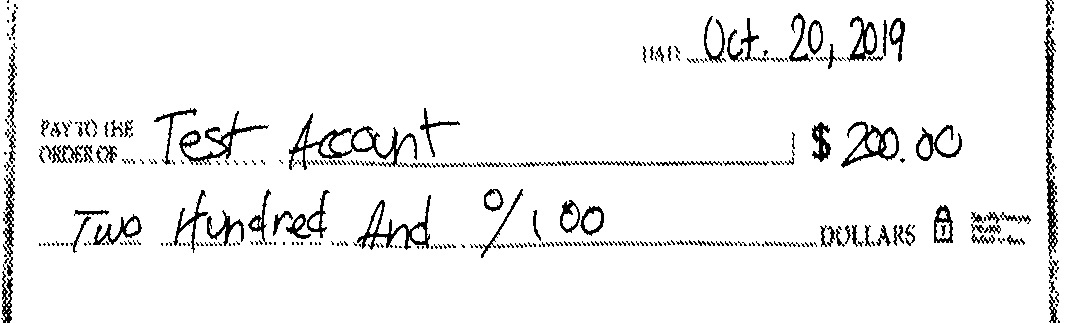 DATE Oct. 20, 2019
PAY TO THE
ORDER OF Test Account $ 200.00
Two Hundred And 0/100 DOLLARS